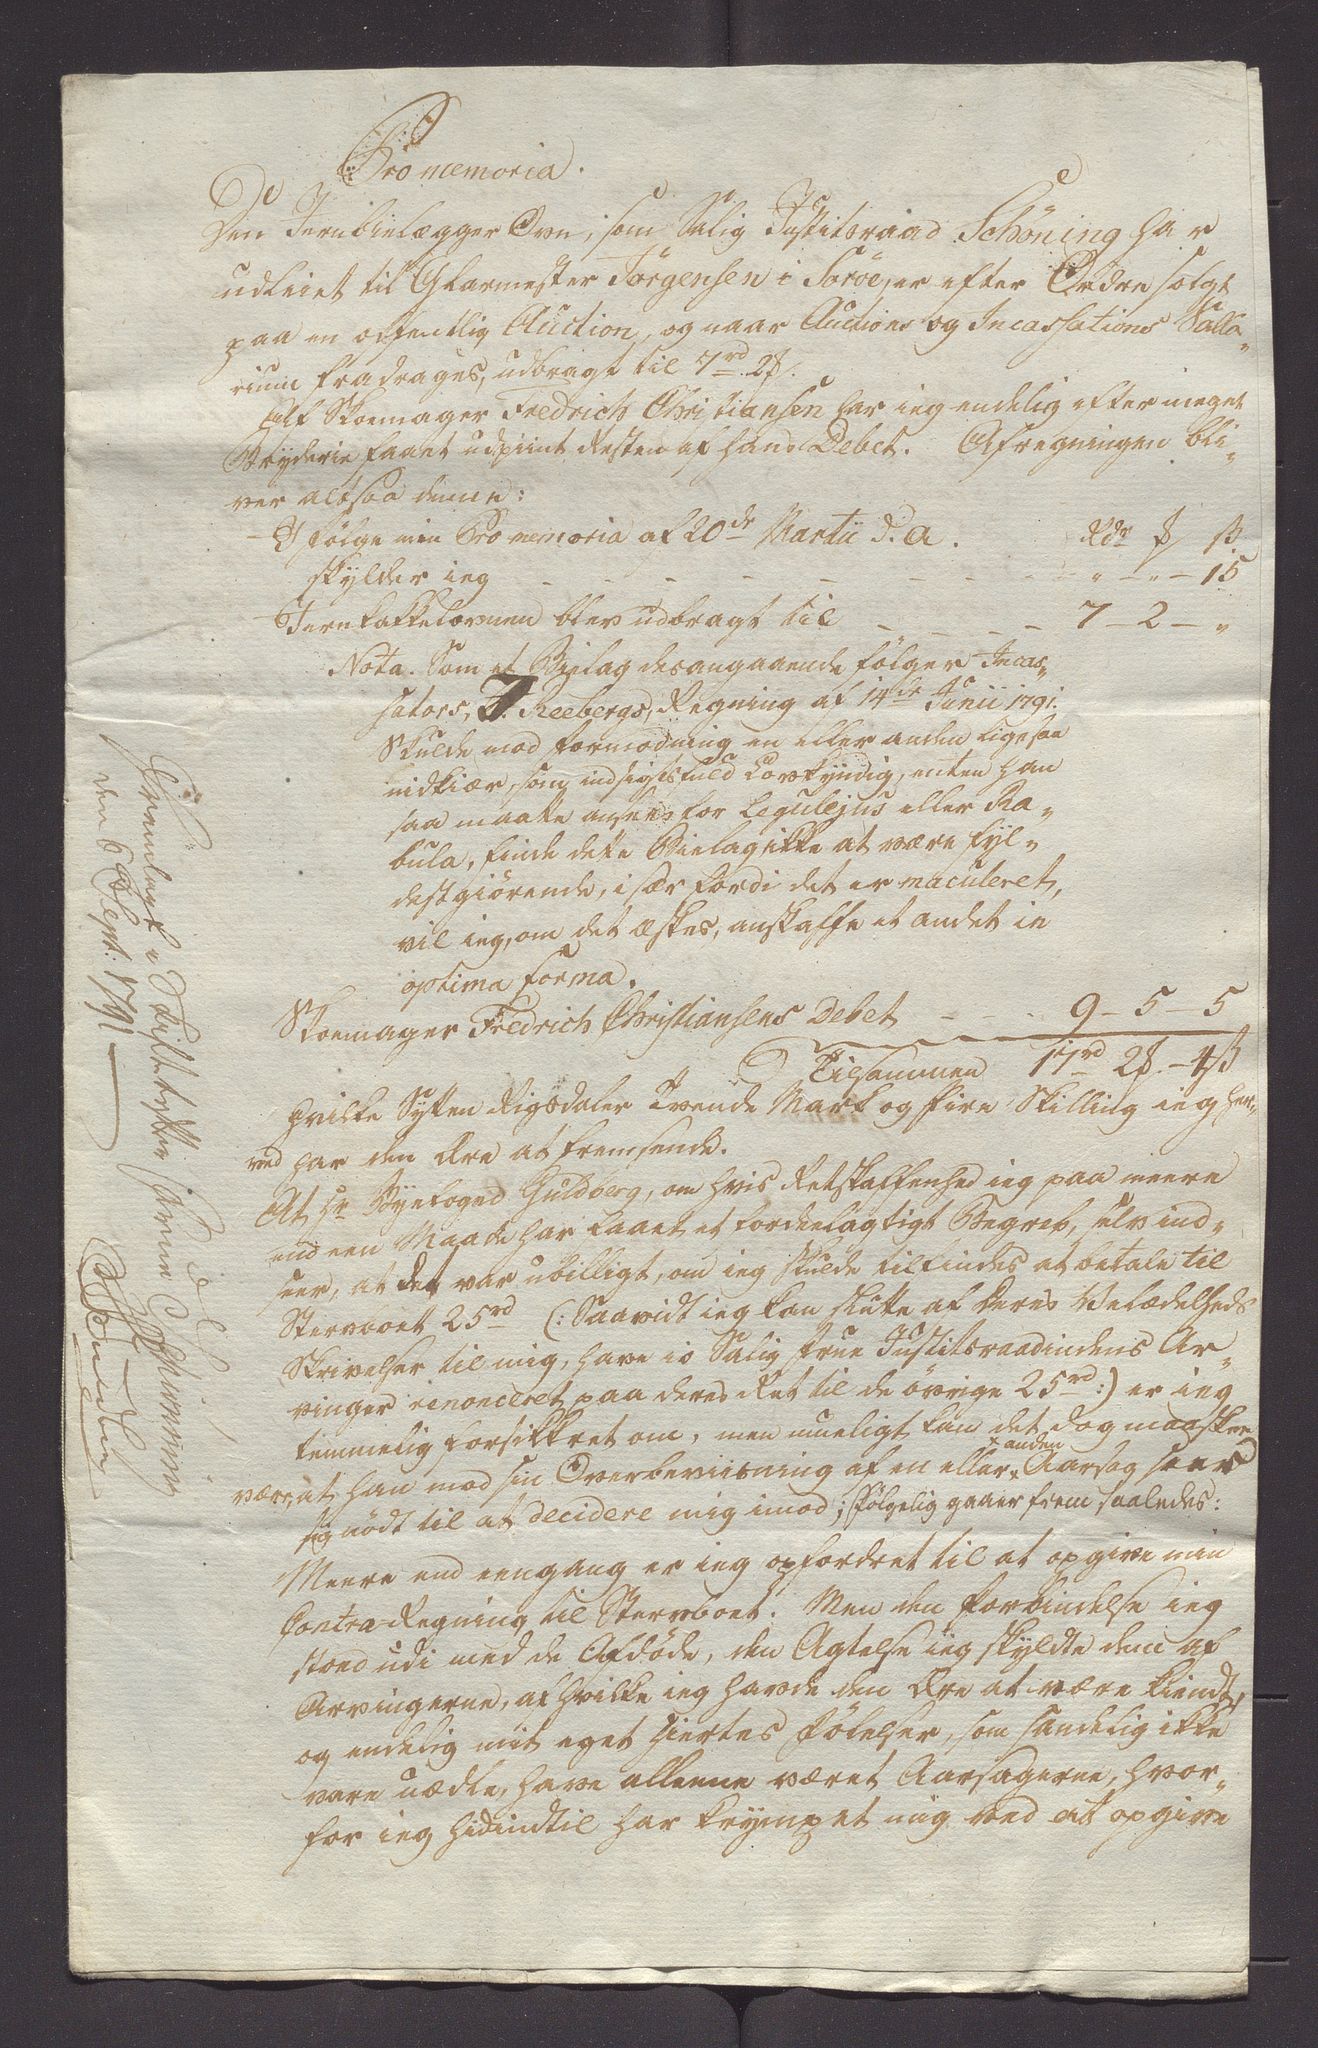 Pro memoria.
Den Jernbielægger Ovn, som Salig Justitsraad Schöning har
udleiet til Glarmester Jörgensen i Soröe, er efter Ordre solgt
paa en offentlig Auction, og naar Auctions og Incassations Salla-
rium fradrages, udbragt til 7rd 2 ꝟ.
Af Skoemager Fredrich Christiansen har ieg endelig efter meget
Bryderie faaet udpiint Resten af hans Debet. Afregningen bli-
ver altsaa denne:
- I følge min Pro memoria af 20de Martii d. A. Rdr ꝟ ß
skylder ieg - - - - - - - - " - " - 15
- Jernkakkelovnen blev udbragt til - - - - 7 - 2 - "
Nota. Som et Bielag desangaaende følger Incas-
sators, J. Reebergs, Regning af 14de Junii 1791.
Skulde mod Formodning en eller anden ligesaa
nidkiær, som indsigtsfuld Lovkyndig, enten han
saa maatte ansees for Legulejus eller Ra-
bula, finde dette Bielag ikke at være fyl-
destgiørende, især fordi det er maculeret,
vil ieg, om det æskes, anskaffe et andet in
optima forma.
Skoemager Fredrich Christiansens Debet - - - 9 - 5 - 5
Tilsammen 17rd 2 ꝟ - 4 ß
hvilke Sytten Rigsdaler Tvende Mark og Fire Skilling ieg her-
ved har den Ære at fremsende.
At Hr Byefoged Guldberg, om hvis Retskaffenhed ieg paa meere
end een Maade har faaet et fordeelagtigt Begreb, selv ind-
seer, at det var ubilligt, om ieg skulde tilfindes at betale til
Stervboet 25rd (: Saavidt ieg kan slutte af Deres Velædelheds
Skrivelser til mig, have io Salig Frue Justitsraadindens Ar-
vinger renonceret paa deres Ret til de övrige 25rd :) er ieg
temmelig forsikkret om, men mueligt kan det dog maaskee
være, at han mod sin Overbeviisning af en eller anden Aarsag seer
sig nödt til at decidere mig imod; følgelig gaaer frem saaledes:
Meere end eengang er ieg opfordret til at opgive min
Contra Regning til Stervboet. Men den Forbindelse ieg
stoed udi med de Afdøde, den Agtelse ieg skyldte dem af
Arvingerne, af hvilke ieg havde den Ære at være kiendt,
og endelig mit eget Hiertes Følelser, som sandelig ikke
vare uædle, have alleene været Aarsagerne, hvor-
for ieg hidindtil har krympet mig ved at opgive
Fremlagt i Skifteretten
den 6 Sept: 1791